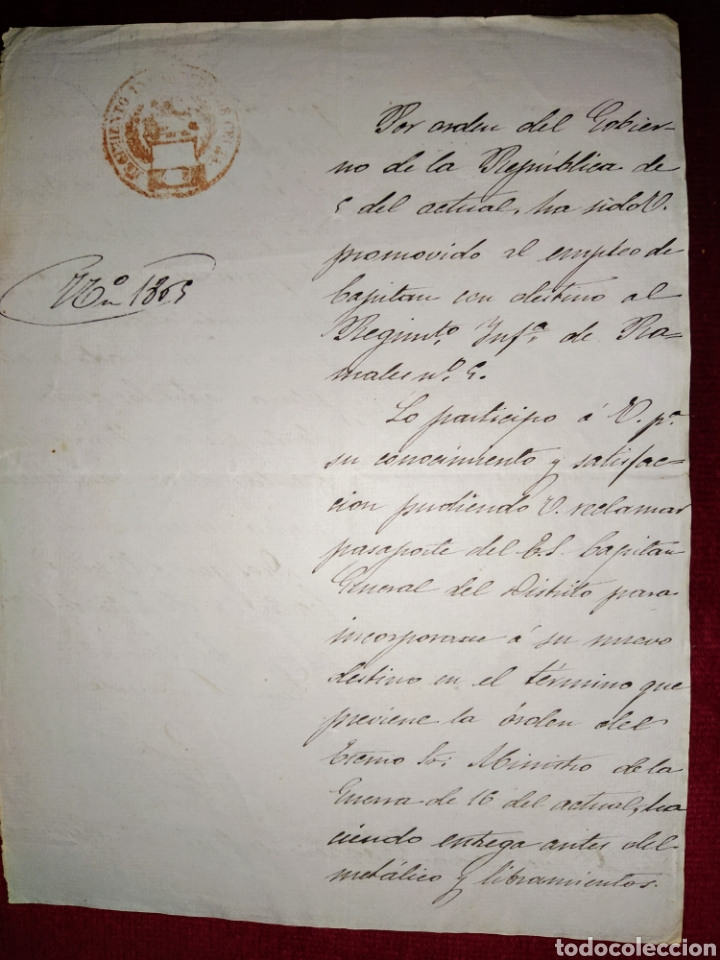 REGIMIENTO
Nº 1305
Por orden del Gobier-
no de la República de
5 del actual, ha sido V.
promovido al empleo de
Capitan con destino al
Regimto. Infa. de Ra-
males nº. 5.
Lo participo á V. pa.
su conocimiento y satisfac-
cion pudiendo V. reclamar
pasaporte del E.S. Capitan
General del Distrito para
incorporarse á su nuevo
destino en el término que
previene la órden del
Exemo Sr. Ministro de la
Guerra de 16 del actual, ha
ciendo entrega antes del
metálico y libramientos.
todocoleccion.net